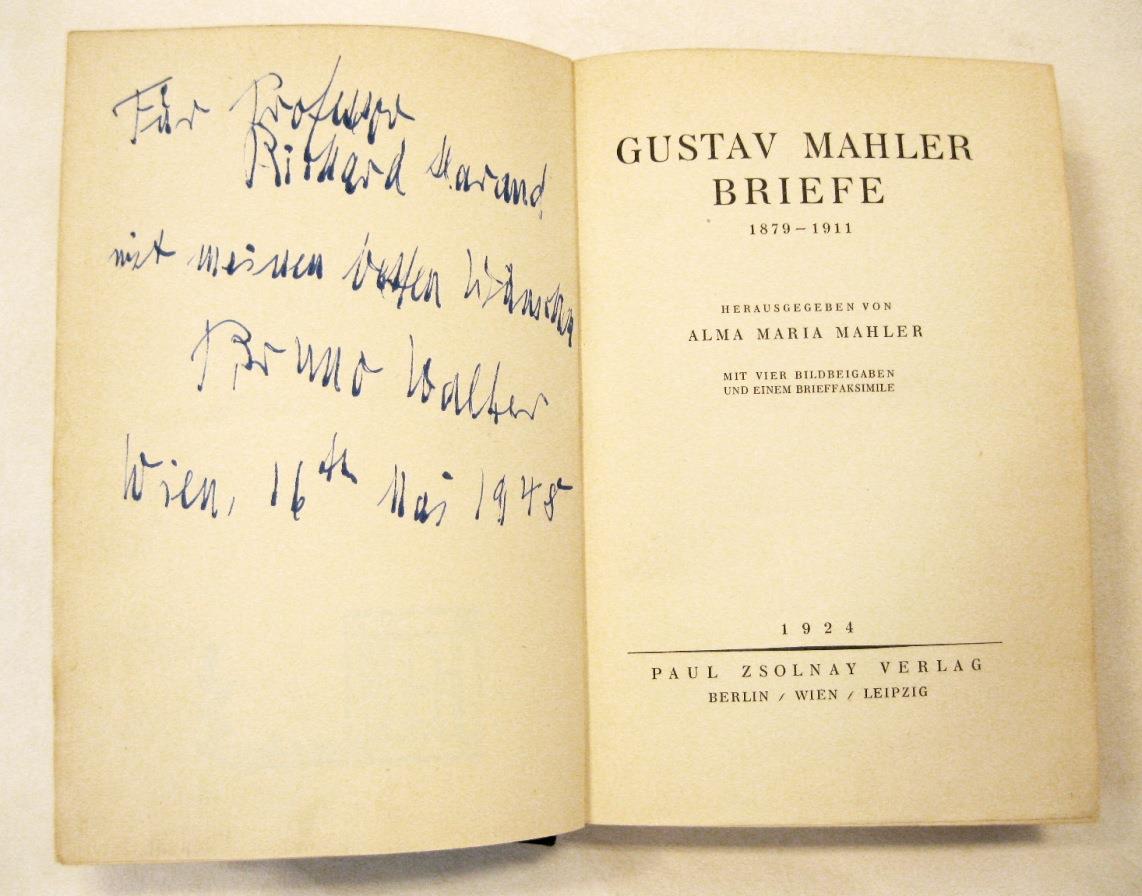 Für Professor
Richard Marand
mit meinen besten Wünschen
Bruno Walter
Wien, 16th Mai 1948
GUSTAV MAHLER
BRIEFE
1879–1911
HERAUSGEGEBEN VON
ALMA MARIA MAHLER
MIT VIER BILDBEIGABEN
UND EINEM BRIEFFAKSIMILE
1924
PAUL ZSOLNAY VERLAG
BERLIN / WIEN / LEIPZIG